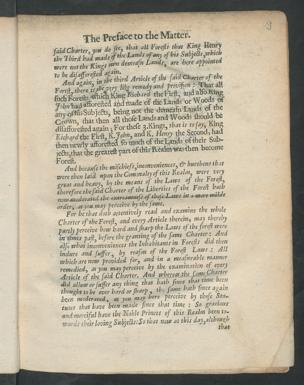 The Preface to the Matter.
said Charter, you do see, that all Forests that King Henry
the Third had made of the Lands of any of his Subjects, which
were not the Kings own demeasn Lands, are here appointed
to be disafforested again.
And again, in the third Article of the said Charter of the
Forest, there is the very like remedy and provision: That all
such Forests which King Richard the First, and also King
John had afforested and made of the Lands or Woods of
any of his Subjects, being not the demeasn Lands of the
Crown, that then all those Lands and Woods should be
disafforested again; For these 3. Kings, that is to say, King
Richard the First, K. John, and K. Henry the Second, had
then newly afforested so much of the Lands of their Sub-
jects, that the greatest part of this Realm was then become
Forest.
And because the mischiefs, inconveniences, & burthens that
were then laid upon the Commonalty of this Realm, were very
great and heavy, by the means of the Laws of the Forest,
therefore the said Charter of the Liberties of the Forest hath
now moderated the extremity of those Laws in a more milde
order, as you may perceive by the same.
For he that doth attentively read and examine the whole
Charter of the Forest, and every Article therein, may thereby
purely perceive how hard and sharp the Laws of the forest were
in times past, before the granting of the same Charter: And
also what inconveniences the Inhabitants in Forests did then
indure and suffer, by reason of the Forest Laws: All
which are now provided for, and in a measurable manner
remedied, as you may perceive by the examination of every
Article of the said Charter. And whereas the same Charter
did allow or suffer any thing that hath since that time been
thought to be over hard or sharp, the same hath since again
been moderated, as you may here perceive by those Sta-
tutes that have been made since that time: So gracious
and merciful have the Noble Princes of this Realm been to-
wards their loving Subjects: So that now at this day, although
that